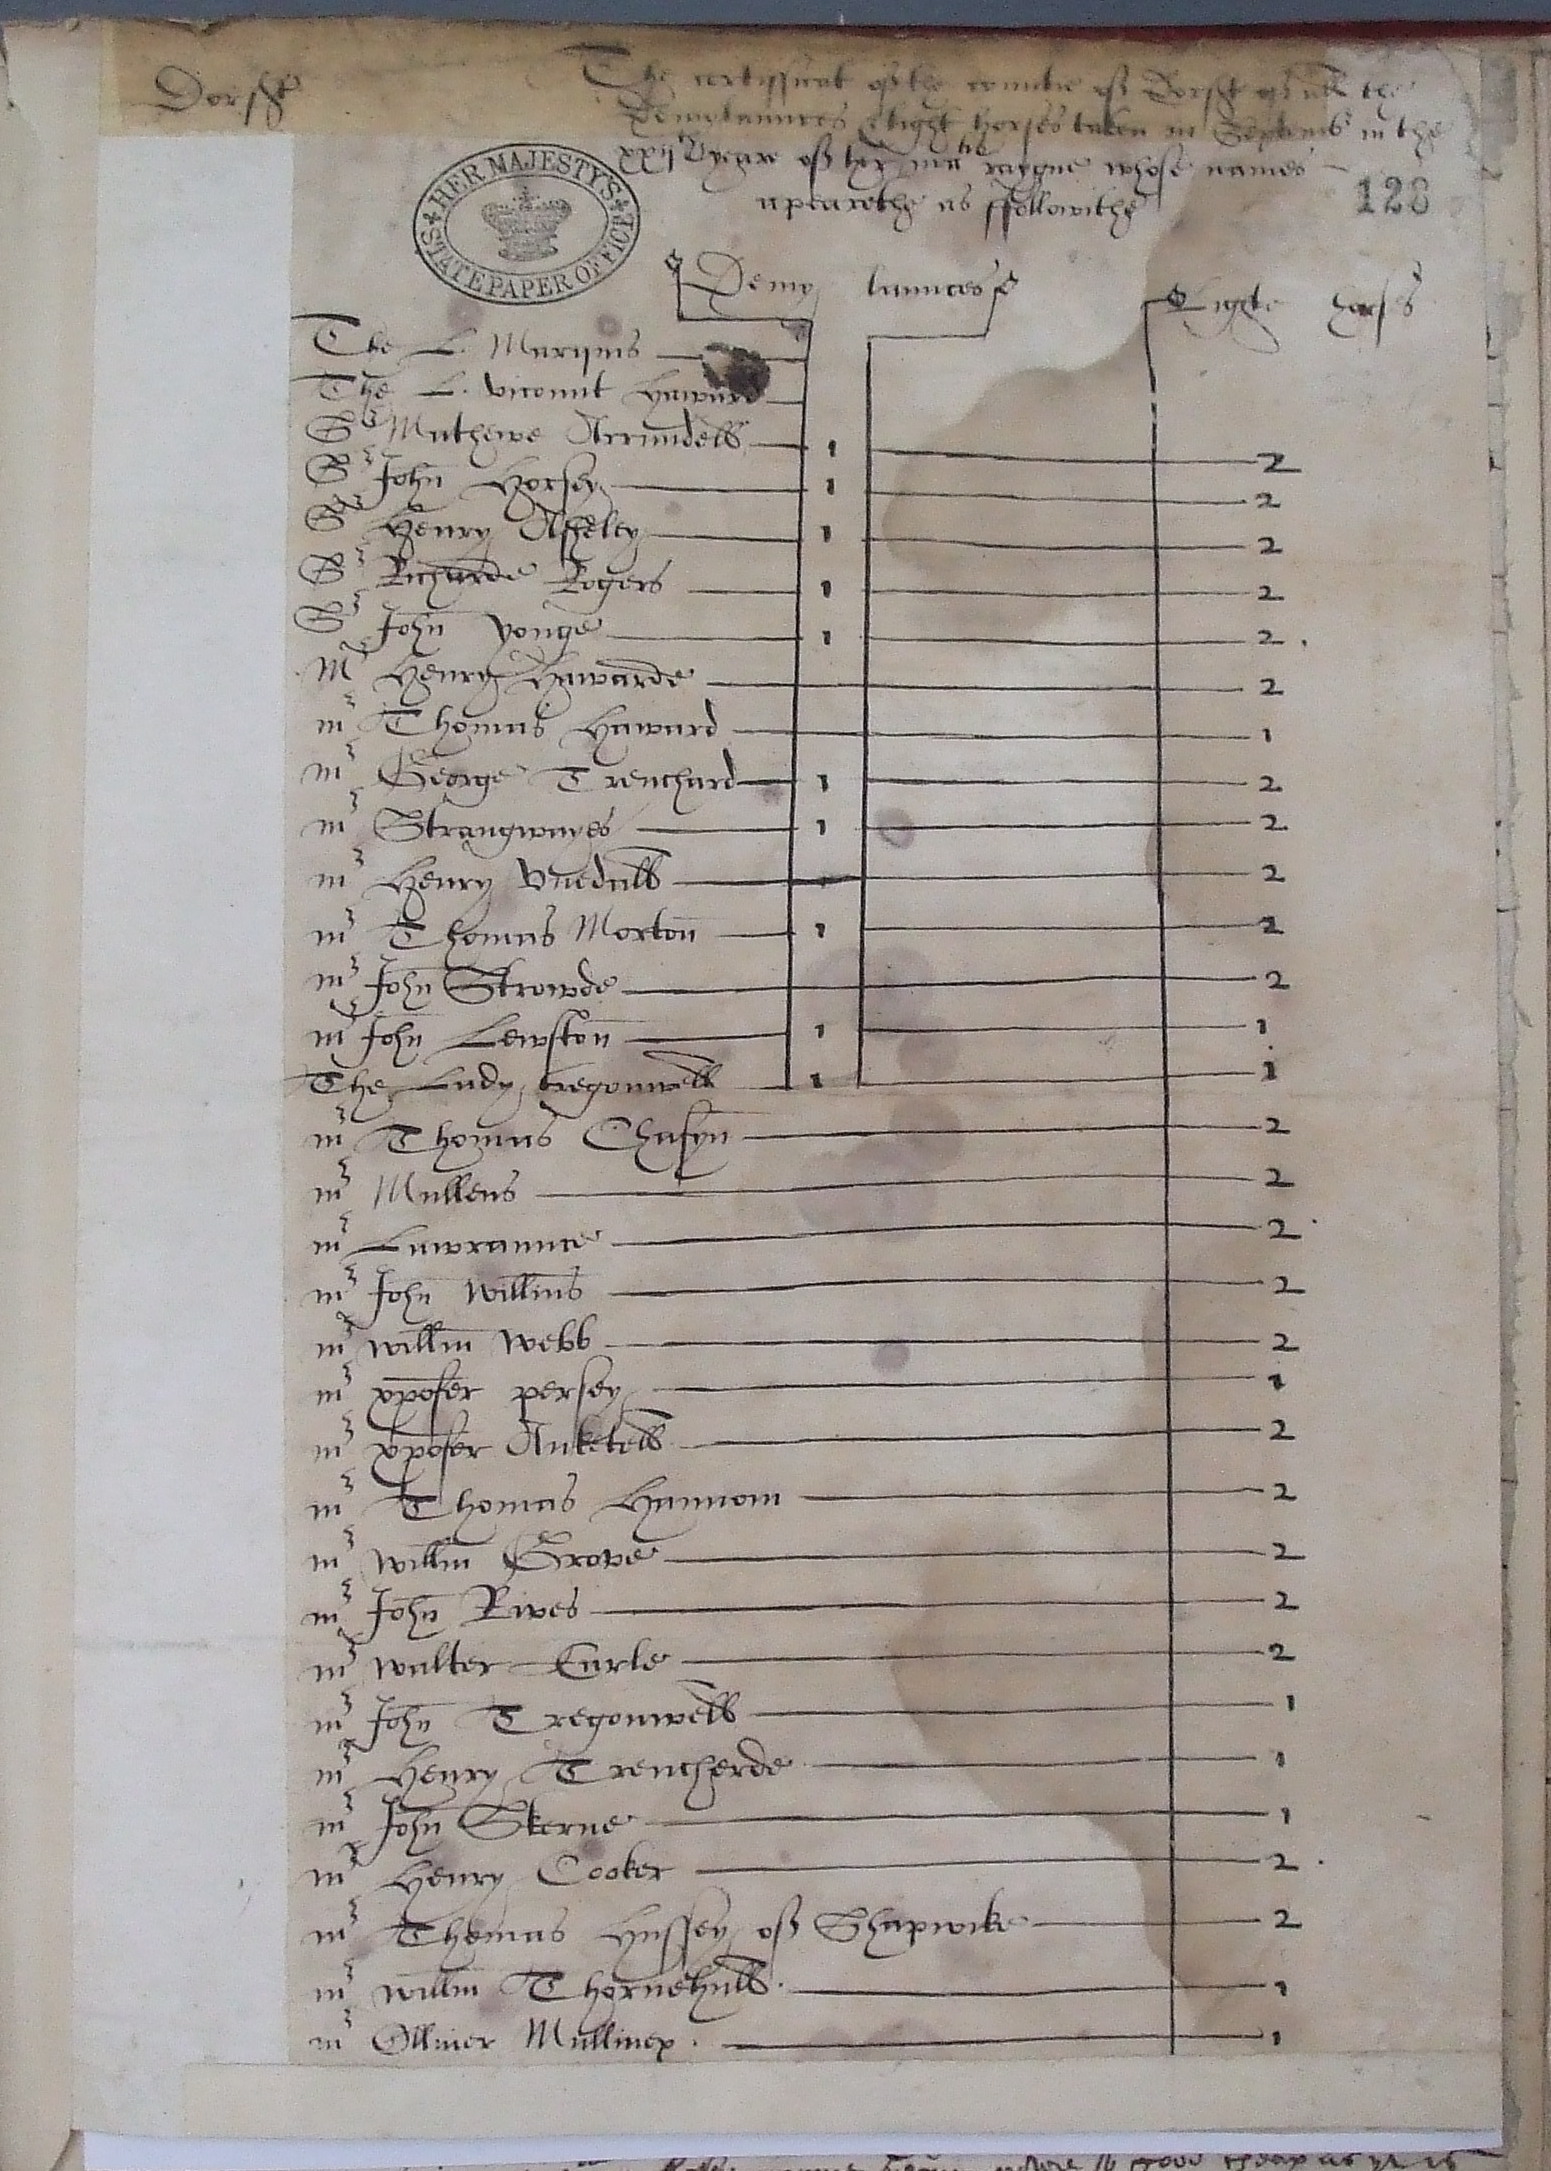 Dorsset
The certifficat off the countie off Dorsset off all the
Demylaunces & light horses taken in Septemb in the
xxijth yeare off her matis raygne whose names
apearethe as ffollowithe
128
HER MAJESTY'S STATE PAPER OFFICE
Demy launces Lighte horses
The L. Marquis
The L. vicount Hawurd
Sr Mathewe Arrundell 1 2
Sr John Horsey 1 2
Sr Henry Assheley 1 2
Sr Richarde Rogers 1 2
Sr John yonge 1 2
Mr Henry Hawarde 2
mr Thomas Haward 1
mr George Trenchard 1 2
mr Strangwayes 1 2
mr Henry Vnedall 2
mr Thomas Morton 1 2
mr John Strowde 2
mr John Lewston 1 1
The Lady tregonwell 1 1
mr Thomas Chafyn 2
mr Mullens 2
mr Lawraunce 2
mr John Willms 2
mr willm webb 2
mr xpofer persey 1
mr xpofer Anketell 2
mr Thomas Hannom 2
mr willm Grove 2
mr John Rives 2
mr walter Earle 2
mr John Tregonwell 1
mr Henry Trencherde 1
mr John Skerne 1
mr Henry Cooker 2
mr Thomas Hussey off Shapwike 2
mr willm Thornehull 1
mr Olliver Mullinex 1